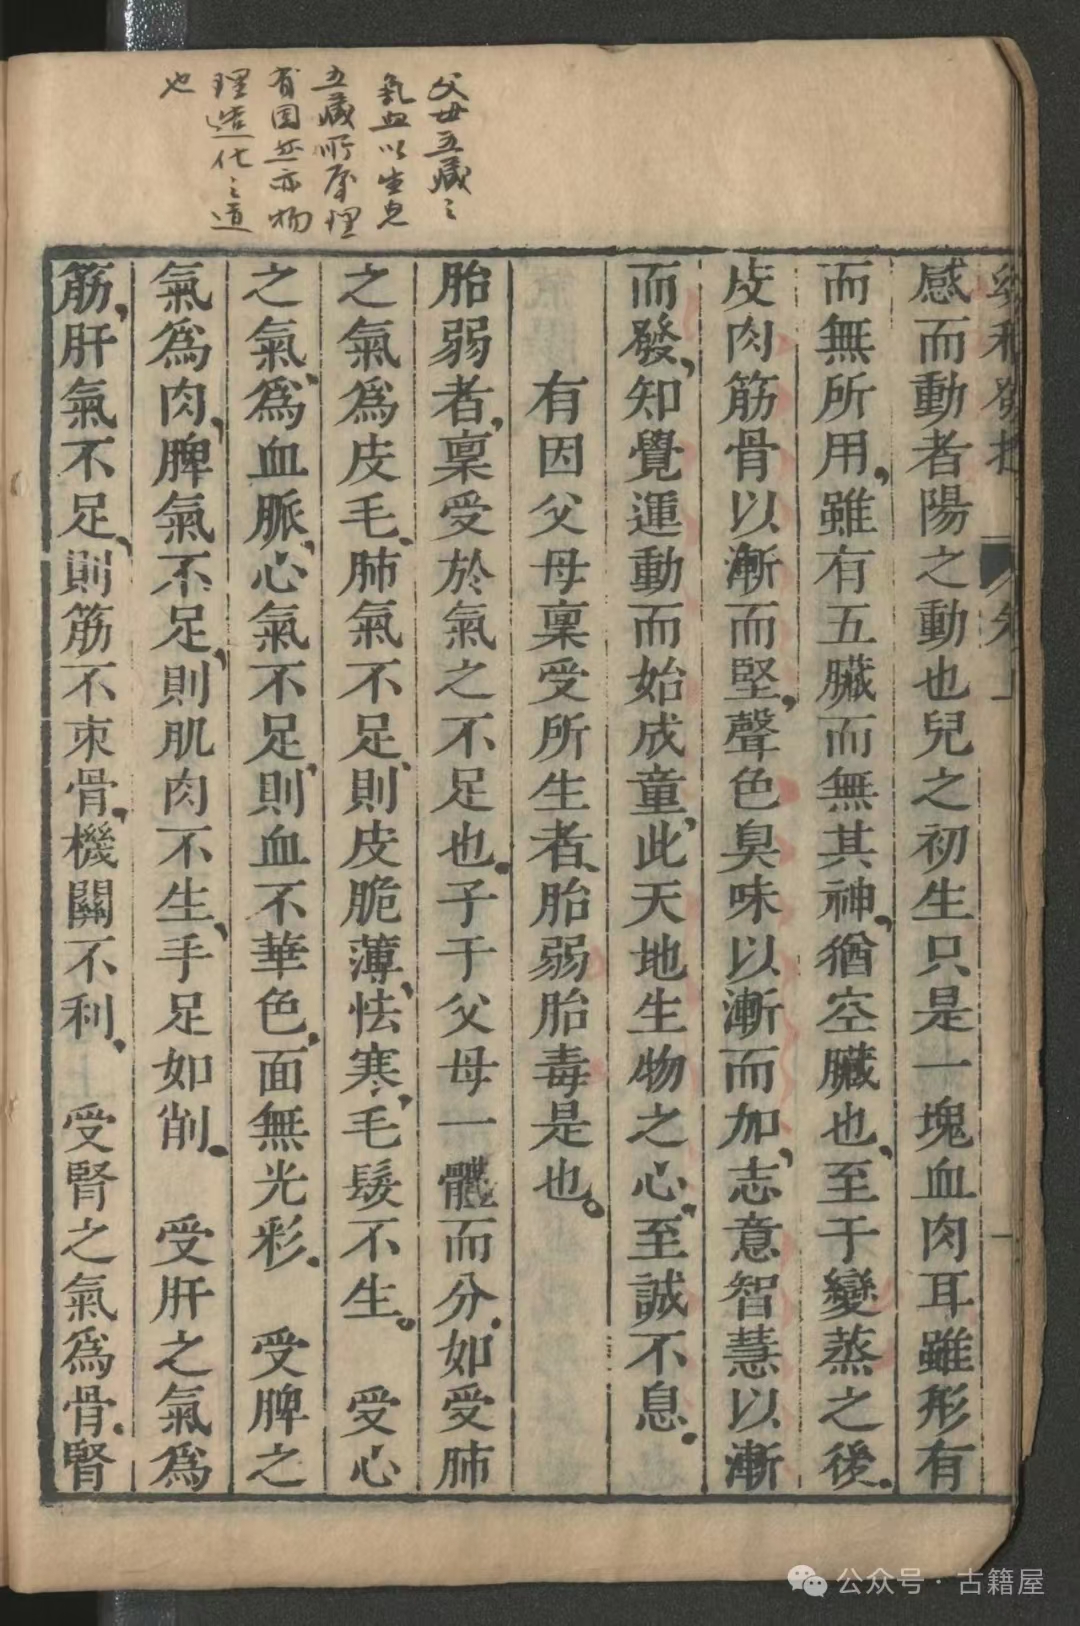 父母五藏之
氣血以生兒
五藏所屬理
有固然亦物
理造化之道
也
感而動者陽之動也兒之初生只是一塊血肉耳雖形有
而無所用雖有五臟而無其神猶空臟也至于變蒸之後
皮肉筋骨以漸而堅聲色臭味以漸而加志意智慧以漸
而發知覺運動而始成童此天地生物之心至誠不息
有因父母稟受所生者胎弱胎毒是也
胎弱者稟受於氣之不足也子于父母一體而分如受肺
之氣爲皮毛肺氣不足則皮脆薄怯寒毛髮不生 受心
之氣爲血脈心氣不足則血不華色面無光彩 受脾之
氣爲肉脾氣不足則肌肉不生手足如削 受肝之氣爲
筋肝氣不足則筋不束骨機關不利 受腎之氣爲骨腎
公众号·古籍屋